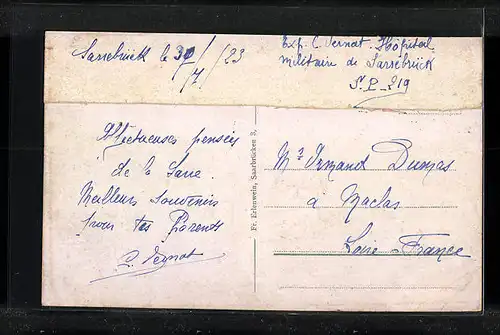 Sarrebrück le 30/7/23
Exp. C. Vernat. Hôpital
militaire de Sarrebrück
S. P. 219
Affectueuses pensées
de la Sarre.
Meilleurs Souvenirs
pour tes Parents
Fr. Erlenwein, Saarbrücken 3.
Mr Armand Dumas
à Maclas
Loire-France